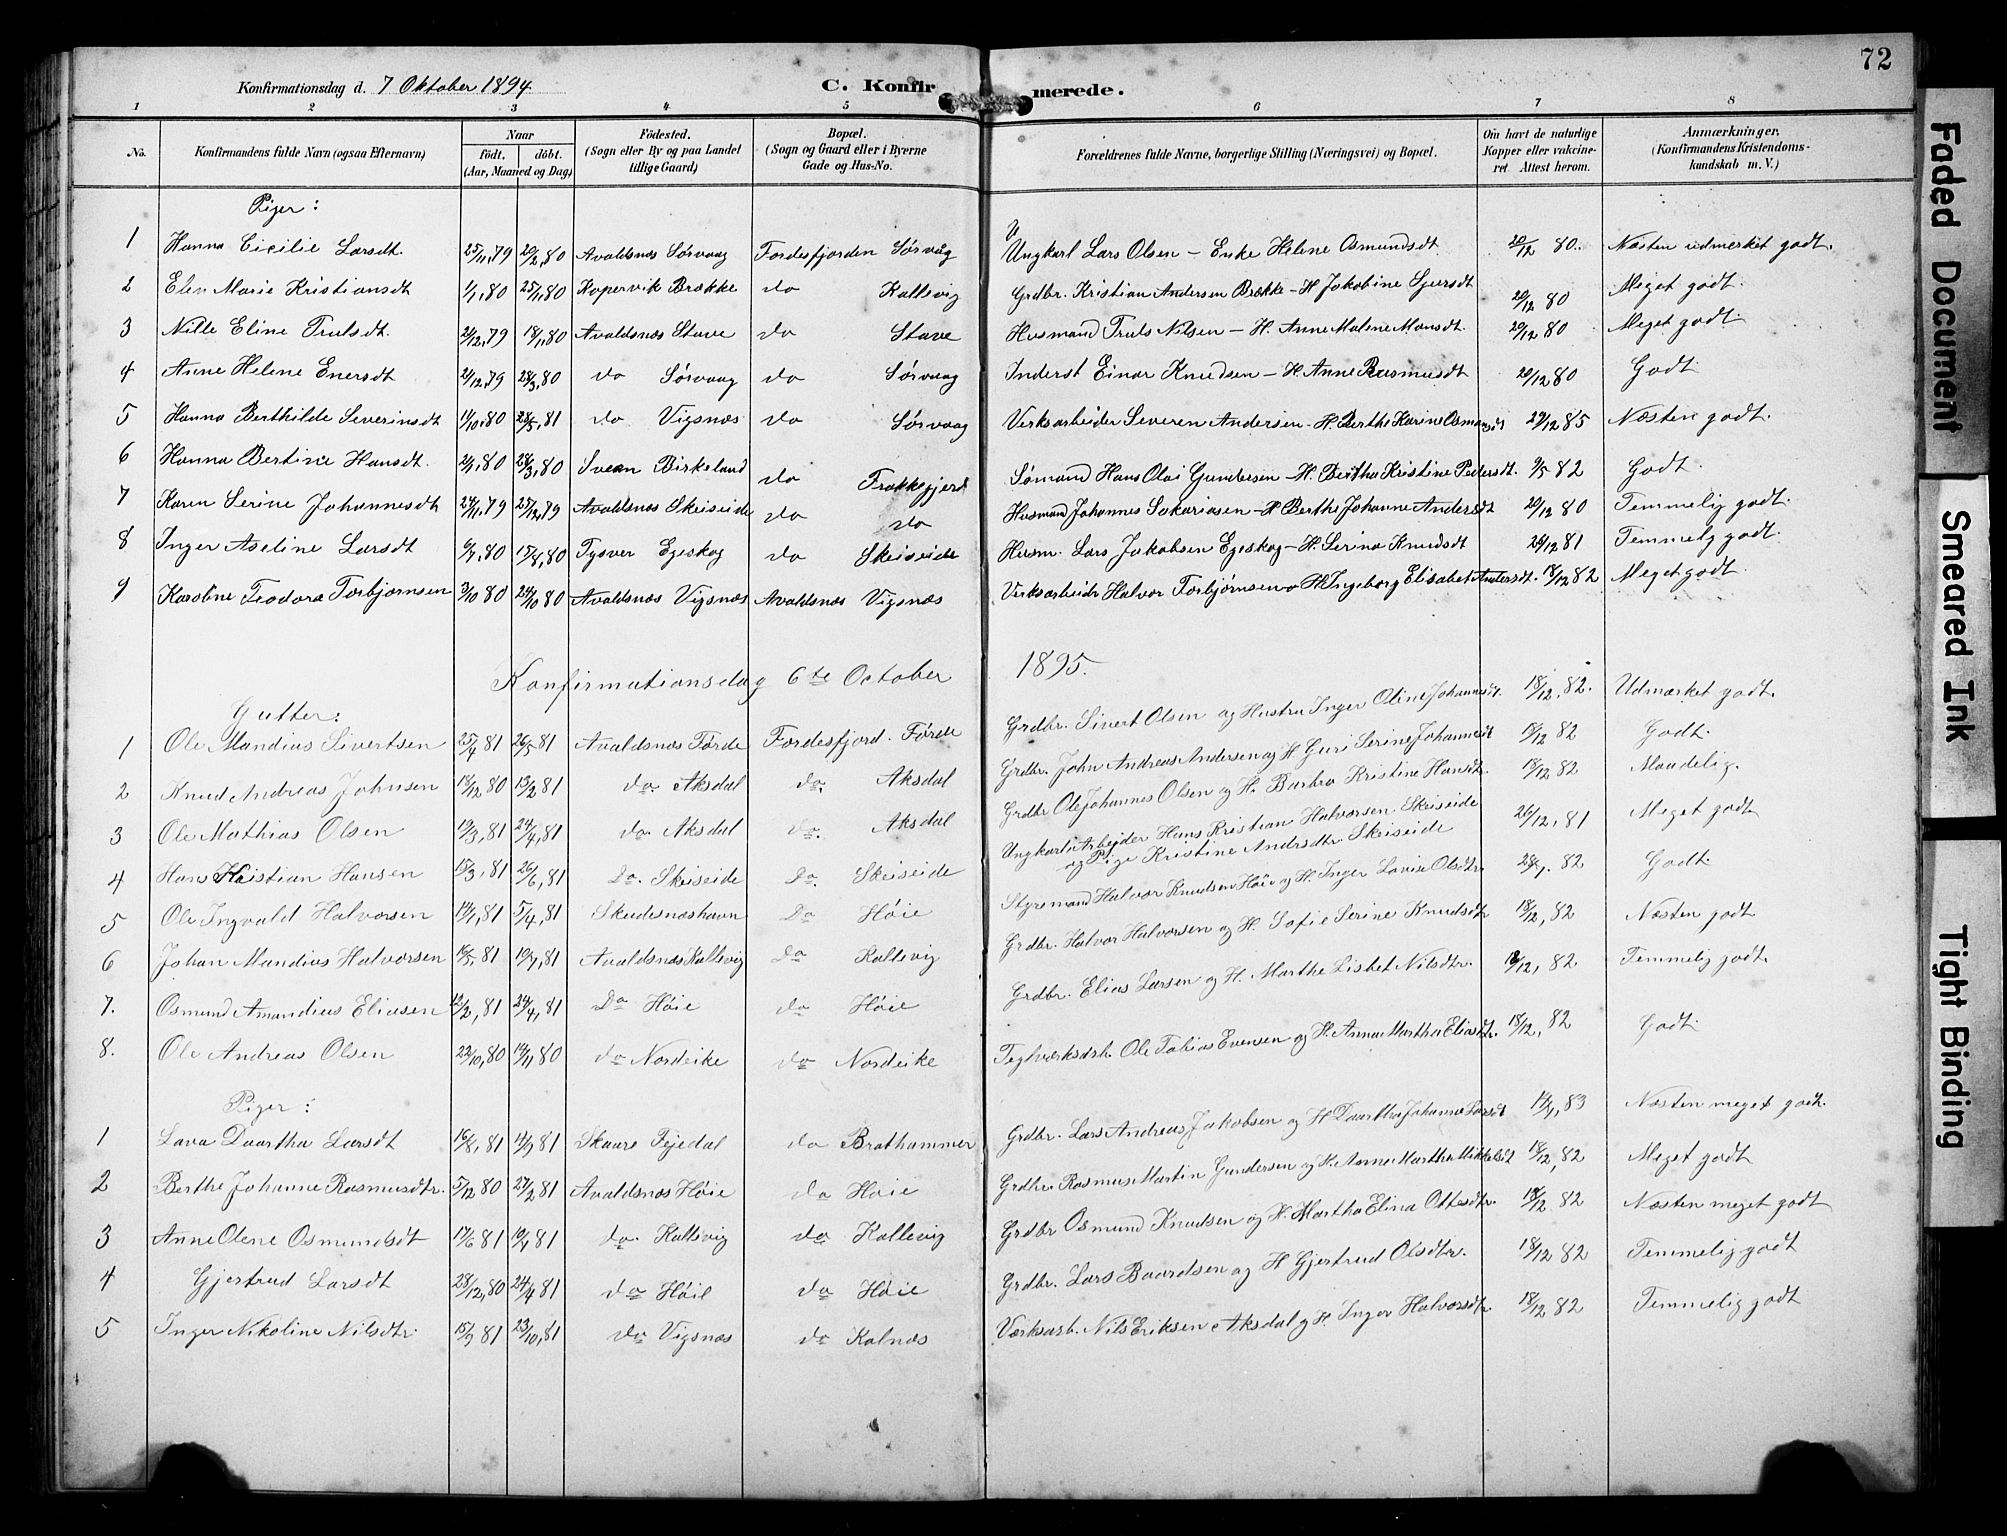 72
Konfirmationsdag d. 7 Oktober 1894
C. Konfirmerede.
1 2 3 4 5 6 7 8
No. Konfirmandens fulde Navn (ogsaa Efternavn) Naar født. døbt. (Aar, Maaned og Dag) Fødested. (Sogn eller By og paa Landet tillige Gaard) Bopæl. (Sogn og Gaard eller i Byerne Gade og Hus-No. Forældrenes fulde Navne, borgerlige Stilling (Næringsvei) og Bopæl. Om havt de naturlige Kopper eller vakcineret Attest herom. Anmærkninger. (Konfirmandens Kristendomskundskab m. V.)
Piger:
1 Hanna Cicilie Larsdt. 25/11,79 29/2,80 Avaldsnæs Sørvaag Førdesfjorden Sørvåg Ungkarl Lars Olsen – Enke Helene Osmundsdt 20/12 80. Næsten udmerket godt.
2 Elen Marie Kristiansdt 1/1,80 25/1,80 Kopervik Brække do Kallevig Grdbr. Kristian Andersen Brække – H Jakobine 20/12 80 Meget godt.
3 Nille Eline Trulsdt. 24/12,79 18/1,80 Avaldsnæs Stave do Stave Husmand Truls Nilsen – H. Anne Malene Monsdt. 20/12 80 Meget godt.
4 Anne Helene Enersdt 24/12,79 28/3,80 do Sørvaag do Sørvaag Inderst Einar Knudsen – H. Anne Rasmusdt 20/12 80 Godt
5 Hanna Berthilde Severinsdt 11/10,80 28/5,81 do Vigsnæs do Sørvaag Verksarbeider Severen Andersen – H. Berthe Karine Osmundsdt 29/12 85 Næsten godt.
6 Hanna Bertine Hansdt. 2/1,80 28/3,80 Sveen Birkeland do Frakkagjerd Sømand Hans Olai Gundersen – H. Bertha Kristine Pedersdt. 9/5 82 Godt.
7 Karen Serine Johannesdt 24/11,79 25/12,79 Avaldsnæs Skeiseide do do Husmand Johannes Sakariasen – H Berthe Johanne Andersdt 20/12 80 Temmelig godt.
8 Inger Aseline Larsdt 9/7,80 15/8,80 Tysver Egeskog do Skeiseide Husm. Lars Jakobsen Egeskog – H. Serina Knudsdt 26/12 81 Temmelg godt.
9 Karoline Teodora Torbjørnsen 3/10 80 24/10 80 Avaldsnæs Vigsnæs Avaldsnæs Vigsnæs Verksarbeidr Halvor Torbjørnsen o H Ingeborg Elisabet Andersdt. 18/12 82 Meget godt.
Konfirmationsdag 6te October 1895.
Gutter:
1 Ole Mandius Sivertsen 25/4 81 26/5 81 Avaldsnæs Førde Førdesfjord. Førde Grdbr. Sivert Olsen og Hustru Inger Oline Johannesdt. 18/12, 82. Udmærket godt.
2 Knud Andreas Johnsen 18/12 80 13/2 81 do. Aksdal do. Aksdal Grdbr. John Andreas Andersen og H Guri Serine Johannesdt 18/12 82 Godt.
3 Ole Mathias Olsen 19/3,81 24/4,81 do Aksdal do. Aksdal Grdbr Ole Johannes Olsen og H. Barbro Kristine Hansdt. 18/12 82 Maadelig.
4 Hans Kristian Hansen 15/3,81 26/6,81 Do. Skeiseide Do. Skeiseide Ungkarl Arbeider Hans Kristian Halvorsen Skeiseide og Pige Kristine Andrsdtr. Skeiseide 26/12, 81 Meget godt
5 Ole Ingvald Halvorsen 14/1,81 5/4,81 Skudesnæshavn Do Høie Styrmand Halvor Knudsen Høie og H. Inger Lovise Olsdtr. 28/1. 82 Godt.
6 Johan Mandius Halvorsen 16/5,81 19/7,81 Avaldsnæs Kallevig Do Kallevig Grdbr. Halvor Halvorsen og H. Sofie Serine Knudsdtr 18/12, 82 Næsten godt
7. Osmund Amandius Eliasen 12/2,81 24/4,81 Do Høie do Høie Grdbr. Elias Larsen og H. Marthe Lisbet Nilsdtr. 18/12, 82 Temmelig godt.
8. Ole Andreas Olsen 22/10,80 14/11,80 do Nordeike do Nordeike Teglværksarb. Ole Tobias Evensen og H. Anna Martha Eliasdtr. 18/12, 82 Godt.
Piger:
1 Lava Daartha Larsdt 16/8,81 14/9 81 Skaare Fejedal do Brathammer Grdbr. Lars Andreas Jakobsen og H Daartha Johanna Larsdt 14/1, 83 Næsten meget godt.
2 Berthe Johanne Rasmusdtr. 5/12 80 27/2 81 Avaldsnæs Høie do Høie Grdbr. Rasmus Martin Gundersen og H. Anna Martha Mikkelsdt 18/12, 82 Meget godt
3 Anne Olene Osmundsdt 17/6 81 19/7 81 do. Kallevig do Kallevig Grdbr Osmund Knudsen og H. Martha Elina Ottesdtr. 18/12 82 Næsten meget godt
4 Gjertrud Larsdt 28/12,80 24/4 81 do Høie do Høie Grdbr. Lars Baardsen og H Gjertrud Olsdtr. 18/12 82 Temmelig godt
5 Inger Nikoline Nilsdtr. 15/9 81 23/10,81 do Vigsnæs do Kalnæs Værksarb. Nils Eriksen Aksdal og H. Inger Halvorsdtr. 18/12 82 Temmelig godt
Faded Document
Smeared Ink
Tight Binding